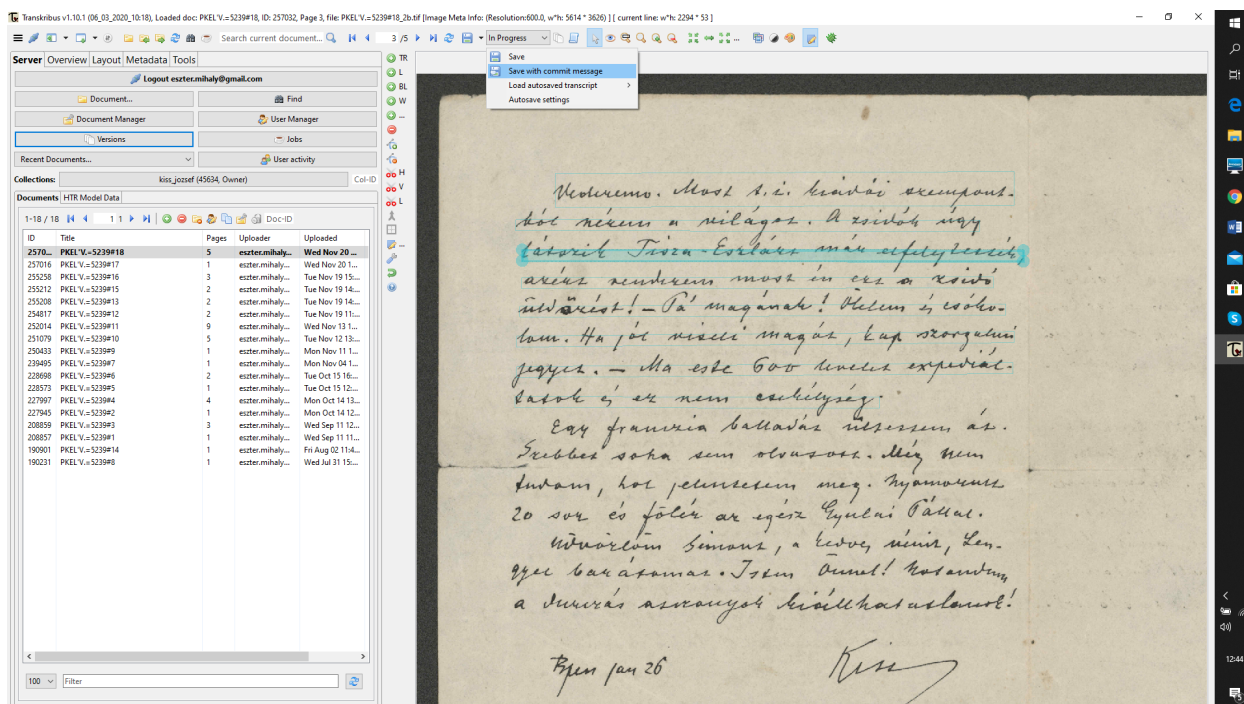 Transkribus v1.10.1 (06_03_2020_10:18), Loaded doc: PKEL'V.=5239#18, ID: 257032, Page 3, file: PKEL'V.=5239#18_2b.tif [Image Meta Info: (Resolution:600.0, w*h: 5614 * 3626) ] [ current line: w*h: 2294 * 53 ]
Search current document... 3 /5 In Progress
Server Overview Layout Metadata Tools
Logout eszter.mihaly@gmail.com
Document... Find
Document Manager User Manager
Versions Jobs
Recent Documents... User activity
Collections: kiss_jozsef (45634, Owner) Col-ID
Documents HTR Model Data
1-18 / 18 1 1 Doc-ID
ID Title Pages Uploader Uploaded
2570... PKEL'V.=5239#18 5 eszter.mihaly... Wed Nov 20 ...
257016 PKEL'V.=5239#17 1 eszter.mihaly... Wed Nov 20 1...
255258 PKEL'V.=5239#16 3 eszter.mihaly... Tue Nov 19 15:...
255212 PKEL'V.=5239#15 2 eszter.mihaly... Tue Nov 19 14:...
255208 PKEL'V.=5239#13 2 eszter.mihaly... Tue Nov 19 14:...
254817 PKEL'V.=5239#12 2 eszter.mihaly... Tue Nov 19 11:...
252014 PKEL'V.=5239#11 9 eszter.mihaly... Wed Nov 13 1...
251079 PKEL'V.=5239#10 5 eszter.mihaly... Tue Nov 12 13:...
250433 PKEL'V.=5239#9 1 eszter.mihaly... Mon Nov 11 1...
239495 PKEL'V.=5239#7 1 eszter.mihaly... Mon Nov 04 1...
228698 PKEL'V.=5239#6 2 eszter.mihaly... Tue Oct 15 16:...
228573 PKEL'V.=5239#5 1 eszter.mihaly... Tue Oct 15 12:...
227997 PKEL'V.=5239#4 4 eszter.mihaly... Mon Oct 14 13...
227945 PKEL'V.=5239#2 1 eszter.mihaly... Mon Oct 14 12...
208859 PKEL'V.=5239#3 3 eszter.mihaly... Wed Sep 11 12...
208857 PKEL'V.=5239#1 1 eszter.mihaly... Wed Sep 11 11...
190901 PKEL'V.=5239#14 1 eszter.mihaly... Fri Aug 02 11:4...
190231 PKEL'V.=5239#8 1 eszter.mihaly... Wed Jul 31 15:...
100 Filter
TR
L
BL
W
...
H
V
L
Save
Save with commit message
Load autosaved transcript
Autosave settings
Vederemo. Most t.i. kiadói szempont-
ból nézem a világot. A zsidók úgy
látszik Tisza-Eszlárt már elfelejtették,
azért rendezem most én ezt a zsidó
üldözést! – Pá magának! Ölelem és csóko-
lom. Ha jól viseli magát, kap szorgalmi
jegyet. – Ma este 600 levelet expediál-
tatok és ez nem csekélység.
Egy francia balladát ültettem át.
Szebbet soha sem olvasott. Még nem
tudom, hol jelentetem meg. Nyomorult
20 sor és fölér az egész Gyulai Pállal.
Üdvözlöm Simont, a kedves nénit, Len-
gyel barátomat. Isten Önnel!
a asszonyok kiállhatatlanok!
Bpen jan 26
Kiss
12:44